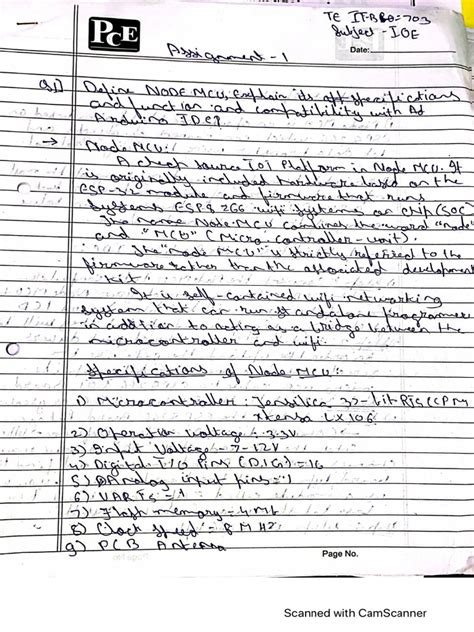 PCE
TE IT-B Bo-703
Subject - IOE
Date:
Assignment - 1
Q1) Define NODE MCU, explain its specifications
and function and compatibility with Ad
Arduino IDE?
→ Node MCU:
A cheap source IoT Platform is Node MCU. It
is originally included hardware based on the
ESP-32 module and firmware that runs
Systems ESP8266 wifi systems on chip (SOC)
The name Node MCU combines the word "node"
and "MCU" (Micro-controller-unit).
The "Node MCU" is strictly referred to the
firmware rather than the associated development
kit.
It is self-contained wifi networking
system that can run standalone programmes
in addition to acting as a bridge between the
microcontroller and wifi.
Specifications of Node MCU:
1) Microcontroller: Tensilica 32-bit RISC CPU
Xtensa LX106
2) Operation voltage: 3.3V
3) Input Voltage - 7-12V
4) Digital I/O Pins (DIO) = 16
5) Analog input pins = 1
6) UARTs = 1
7) Flash memory = 4 Mb
8) Clock Speed - 8 MHz
9) PCB Antenna
Page No.
Scanned with CamScanner